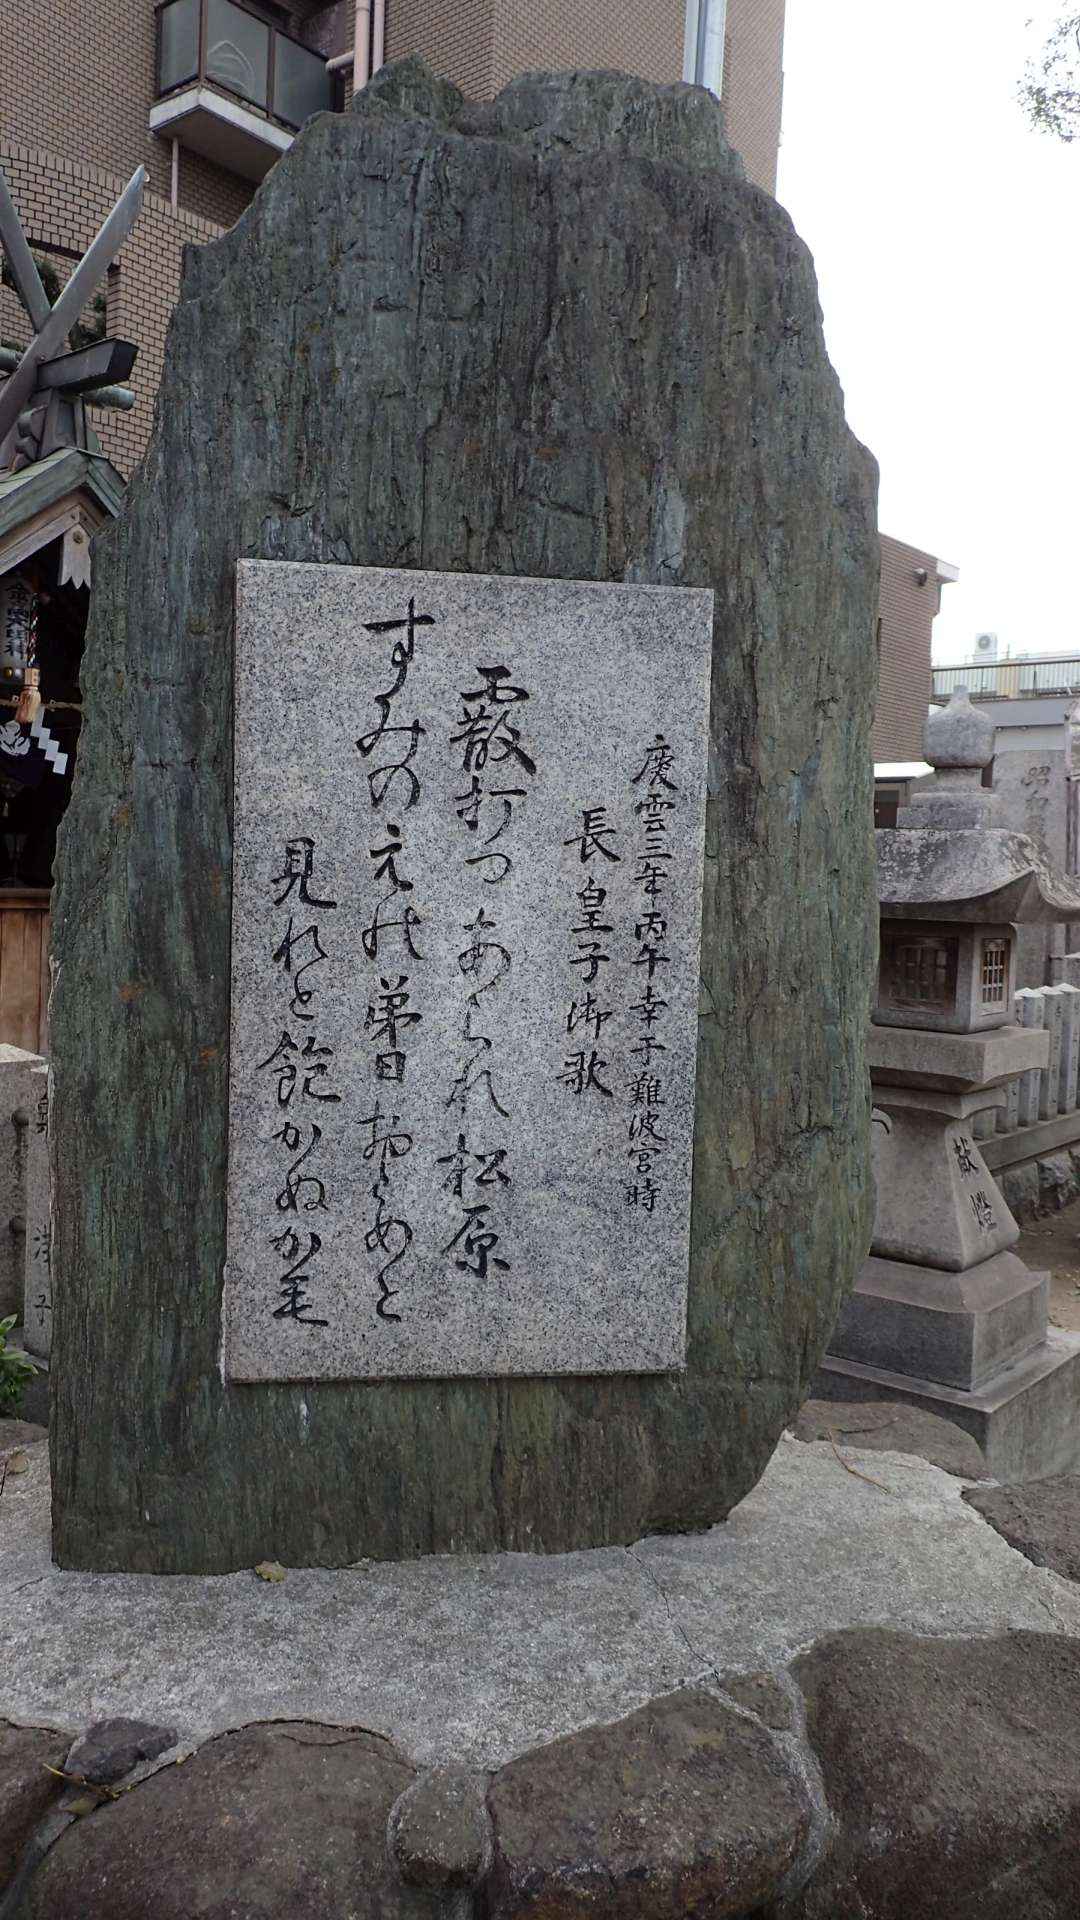 慶雲三年丙午幸于難波宮時
長皇子御歌
霰打つあられ松原
すみのえの弟日おとめと
見れと飽かぬか毛
献燈
昭和